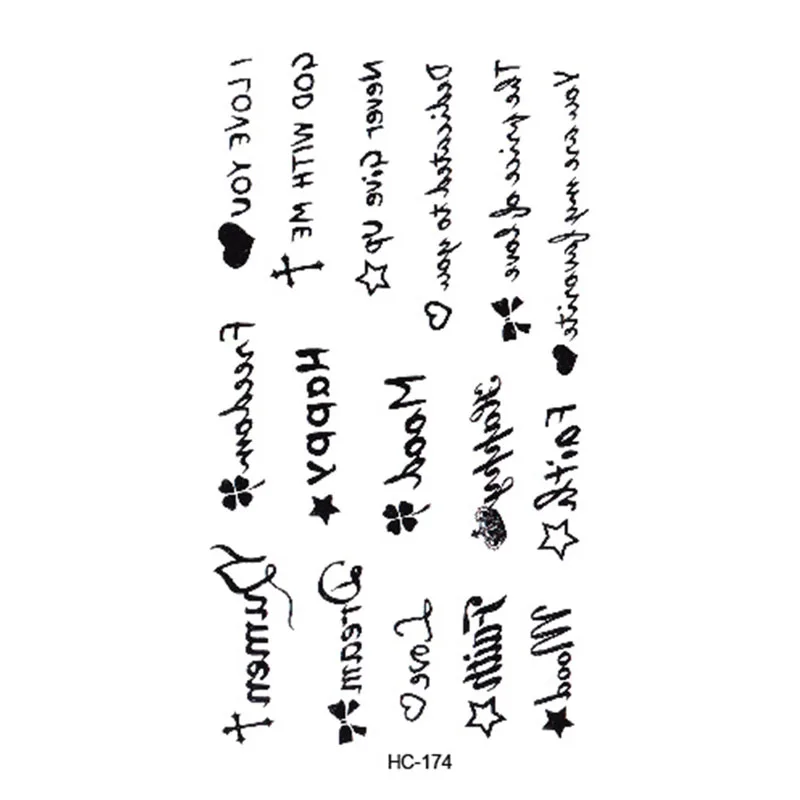 I LOVE YOU
GOD WITH ME
Never Give up
Dedicated to you
The price of love
You are my favorite
Freedom
Happy
Mood
Happy
Faith
Dream
Love
Faith
Mood
HC-174